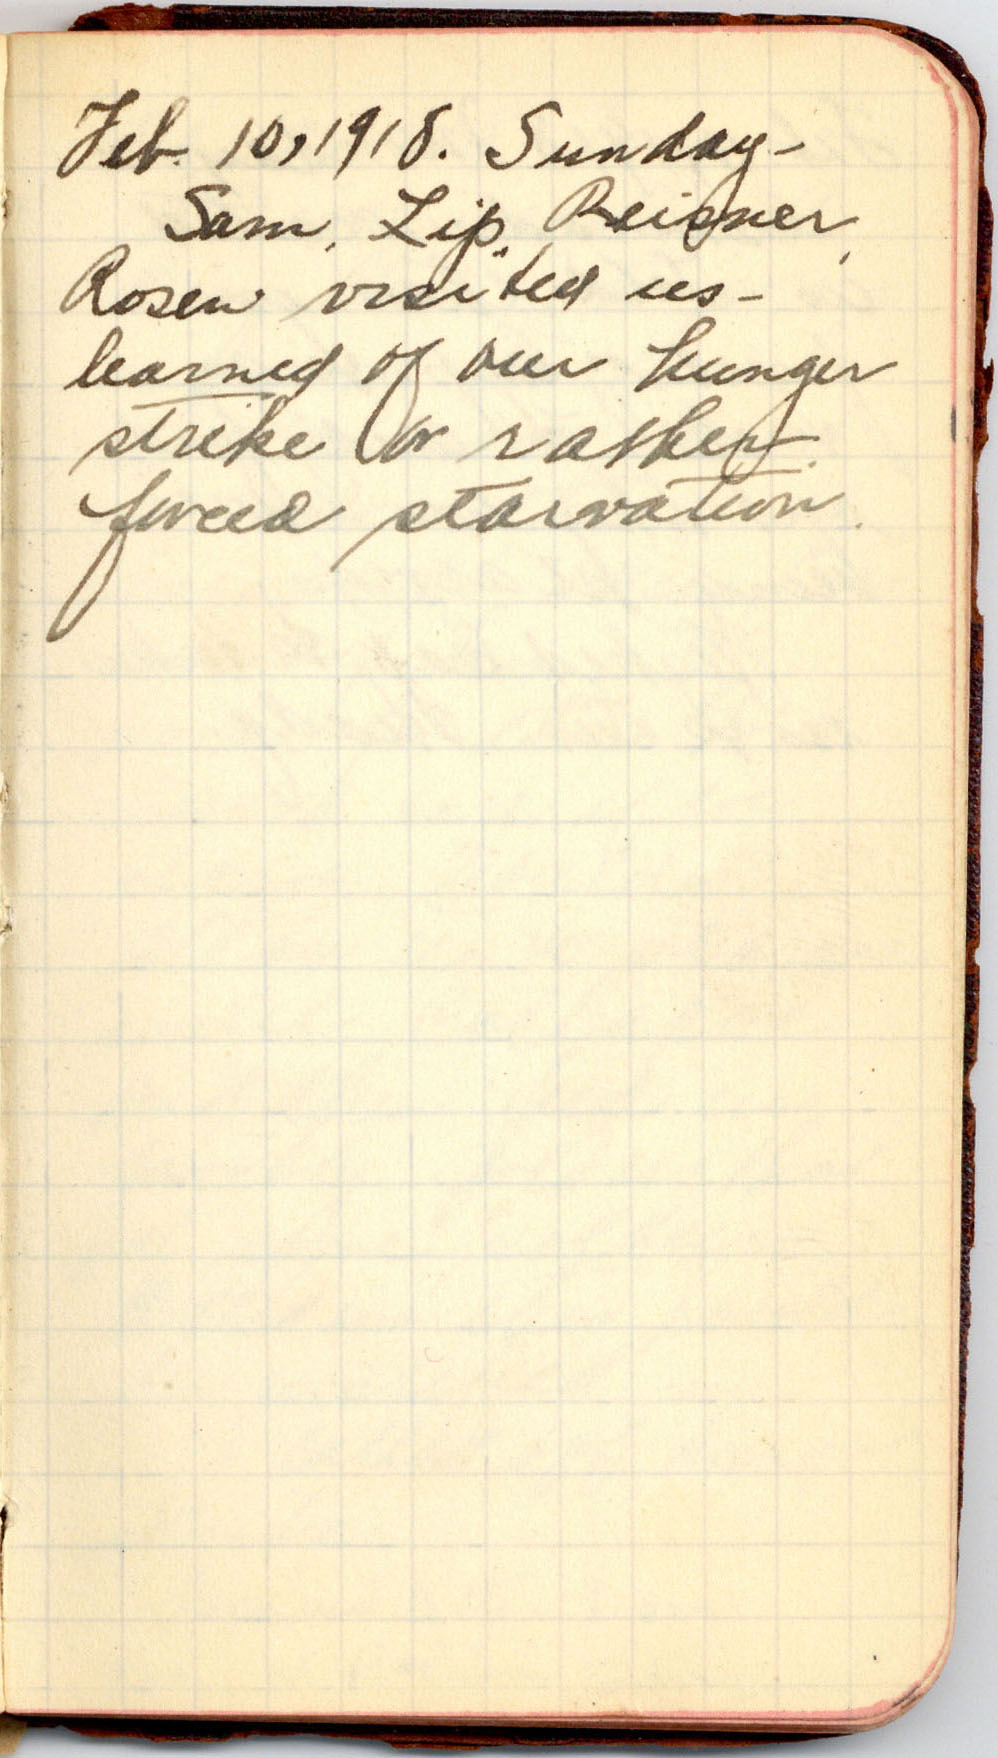 Feb. 10, 1918. Sunday -
Sam, Lip. Reisner,
Rosen visited us -
learned of our hunger
strike or rather
forced starvation.